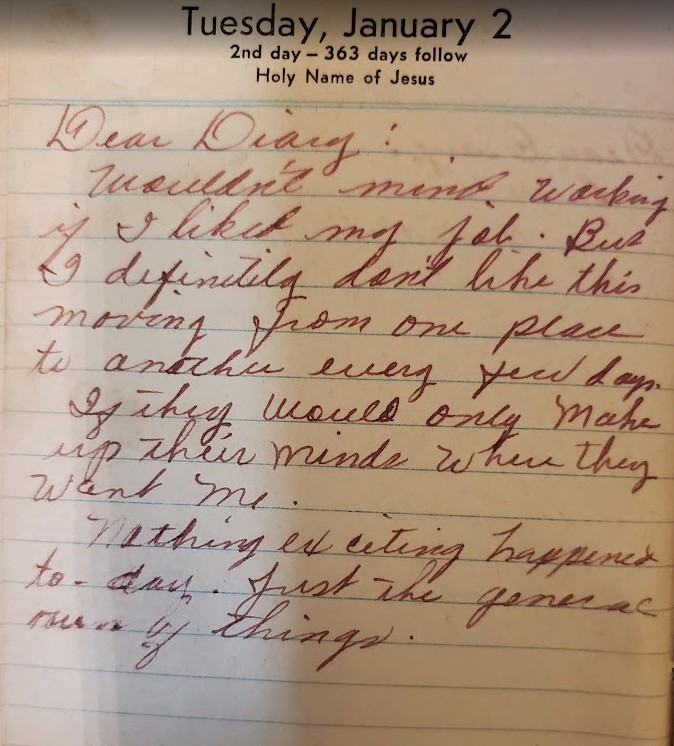 Tuesday, January 2
2nd day – 363 days follow
Holy Name of Jesus
Dear Diary:
Wouldn't mind working
if I liked my job. But
I definitely don't like this
moving from one place
to another every few days.
If they would only make
up their minds where they
want me.
Nothing exciting happened
to-day. Just the general
run of things.